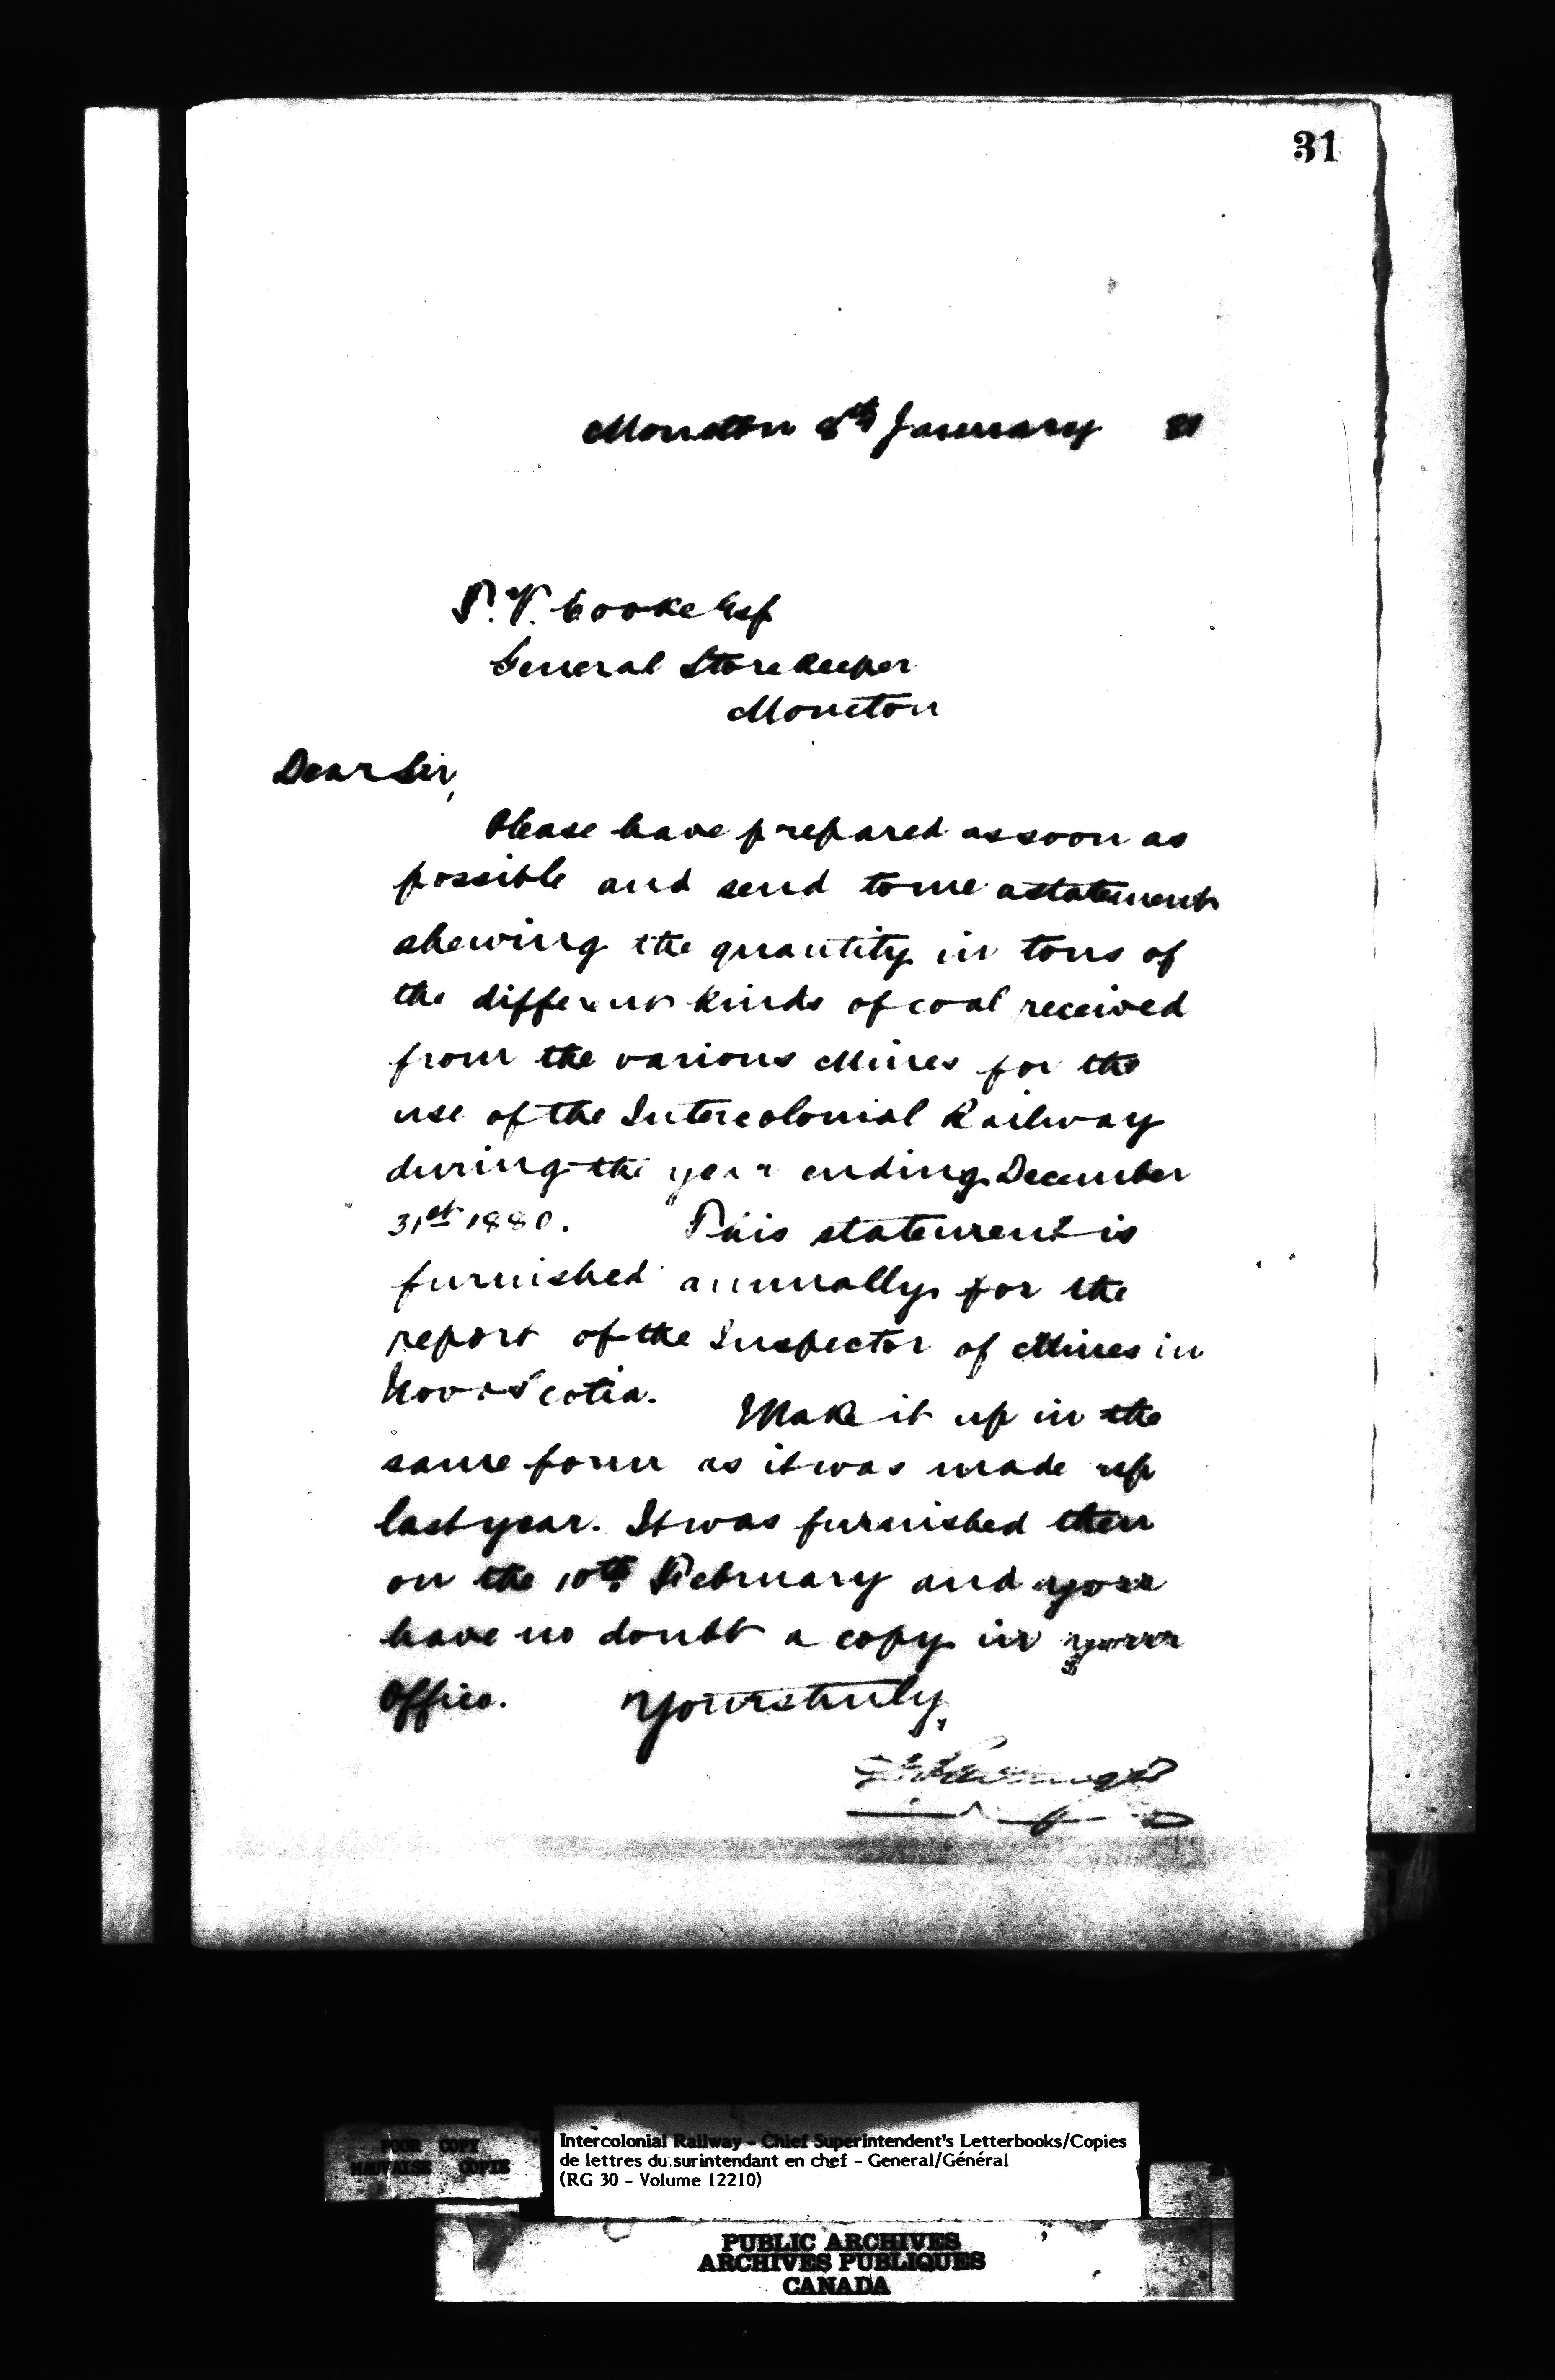 31
Moncton 8th January 81
T. V. Cooke Esq
General Storekeeper
Moncton
Dear Sir,
Please have prepared as soon as
possible and send to me a statement
shewing the quantity in tons of
the different kinds of coal received
from the various Mines for the
use of the Intercolonial Railway
during the year ending December
31st 1880. This statement is
furnished annually for the
report of the Inspector of Mines in
Nova Scotia. Make it up in the
same form as it was made up
last year. It was furnished then
on the 10th February and you
have no doubt a copy in your
Office. Yours truly,
POOR COPY
MAUVAISE COPIE
Intercolonial Railway - Chief Superintendent's Letterbooks/Copies
de lettres du surintendant en chef - General/Général
(RG 30 - Volume 12210)
PUBLIC ARCHIVES
ARCHIVES PUBLIQUES
CANADA